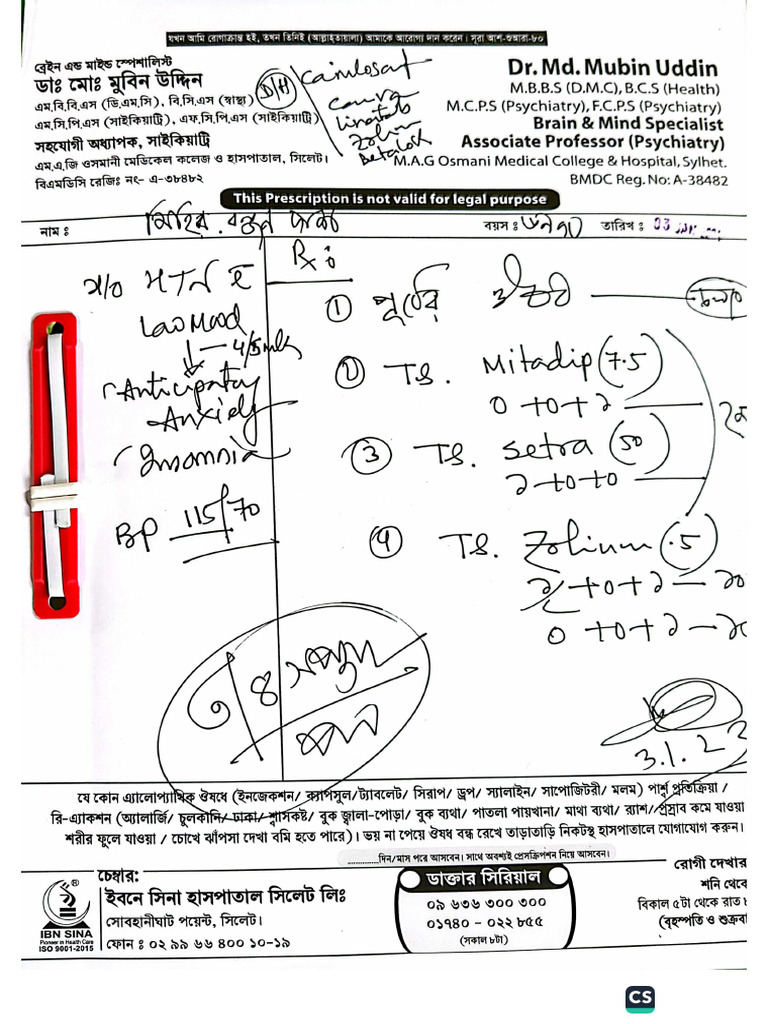 যখন আমি রোগাক্রান্ত হই, তখন তিনিই (আল্লাহতায়ালা) আমাকে আরোগ্য দান করেন। সূরা আশ-শুআরা-৮০
ব্রেইন এন্ড মাইন্ড স্পেশালিস্ট
ডাঃ মোঃ মুবিন উদ্দিন
এম.বি.বি.এস (ডি.এম.সি), বি.সি.এস (স্বাস্থ্য)
এম.সি.পি.এস (সাইকিয়াট্রি), এফ.সি.পি.এস (সাইকিয়াট্রি)
সহযোগী অধ্যাপক, সাইকিয়াট্রি
এম.এ.জি ওসমানী মেডিকেল কলেজ ও হাসপাতাল, সিলেট।
বিএমডিসি রেজিঃ নং- এ-৩৮৪৮২
D/H
Zolium
Betalok
Dr. Md. Mubin Uddin
M.B.B.S (D.M.C), B.C.S (Health)
M.C.P.S (Psychiatry), F.C.P.S (Psychiatry)
Brain & Mind Specialist
Associate Professor (Psychiatry)
M.A.G Osmani Medical College & Hospital, Sylhet.
BMDC Reg. No: A-38482
This Prescription is not valid for legal purpose
নাম ঃ মিহির
বয়স ঃ
তারিখ ঃ 03
HTN
Low Mood
Anticipatory
Anxiety
Insomnia
BP 115/70
Rx
①
② TS. Mitadip (7.5)
0+0+১
③ TS. Setra (50)
১+0+0
④ TS. Zolium (.5)
0+0+১
3.1.23
যে কোন এ্যালোপ্যাথিক ঔষধে (ইনজেকশন/ ক্যাপসুল/ট্যাবলেট/ সিরাপ/ ড্রপ/ স্যালাইন/ সাপোজিটরী/ মলম) পার্শ্ব প্রতিক্রিয়া /
রি-এ্যাকশন (অ্যালার্জি/ চুলকানি/ চাকা/ শ্বাসকষ্ট/ বুক জ্বালা-পোড়া/ বুক ব্যথা/ পাতলা পায়খানা/ মাথা ব্যথা/ র‍্যাশ/ প্রস্রাব কমে যাওয়া
শরীর ফুলে যাওয়া / চোখে ঝাঁপসা দেখা বমি হতে পারে)। ভয় না পেয়ে ঔষধ বন্ধ রেখে তাড়াতাড়ি নিকটস্থ হাসপাতালে যোগাযোগ করুন।
..............দিন/মাস পরে আসবেন। সাথে অবশ্যই প্রেসক্রিপশন নিয়ে আসবেন।
IBN SINA
Pioneer in Health Care
ISO 9001-2015
চেম্বার:
ইবনে সিনা হাসপাতাল সিলেট লিঃ
সোবহানীঘাট পয়েন্ট, সিলেট।
ফোন ঃ ০২ ৯৯ ৬৬ ৪০০ ১০-১৯
ডাক্তার সিরিয়াল
০৯ ৬৩৬ ৩০০ ৩০০
০১৭৪০ - ০২২ ৮৫৫
(সকাল ৮টা)
রোগী দেখার
শনি থেকে
বিকাল ৫টা থেকে রাত ৮
(বৃহস্পতি ও শুক্রবা
CS